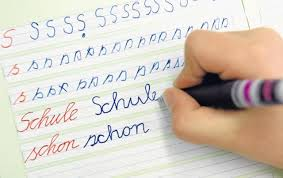 S S S S S S S S S S S S S
s s s s s s s s s s s s s s
s s s s s s s s s s s s s
Schule Schule
schon schon